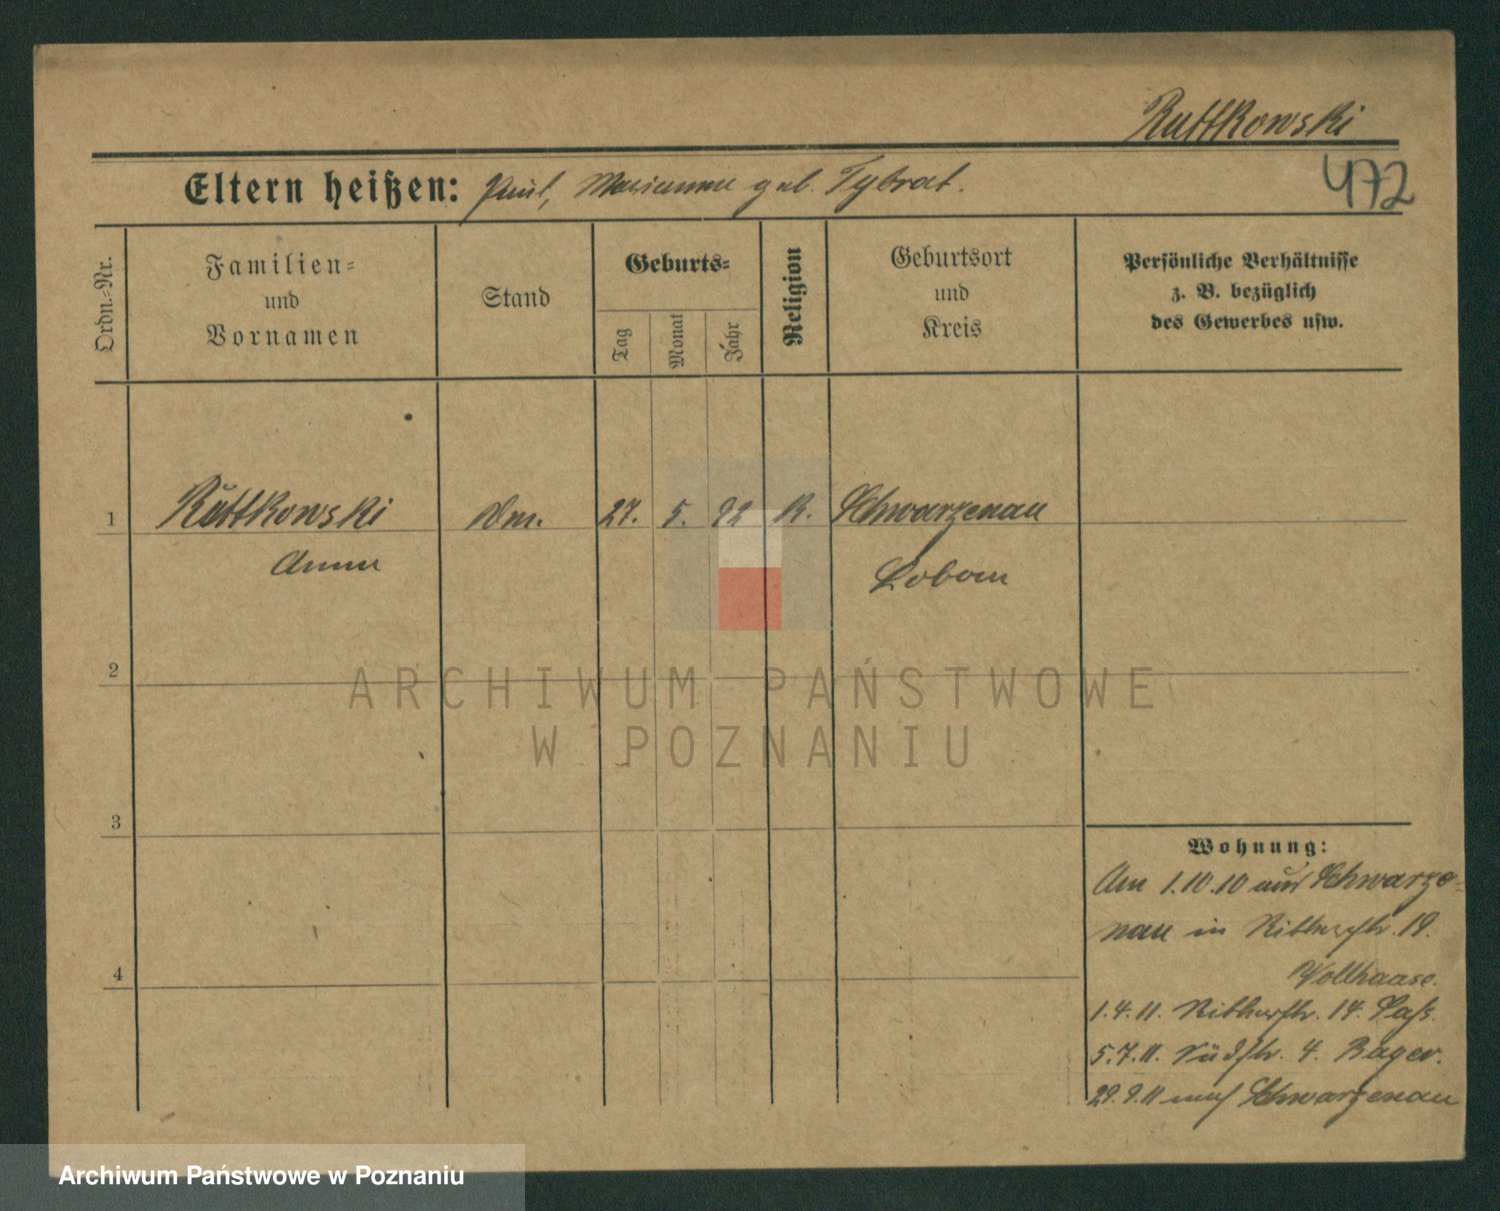 Ruttkowski
Eltern heißen: Paul, Marianne geb. Tybrat.
472
Ordn.=Nr.
Familien=
und
Vornamen
Stand
Geburts=
Tag
Monat
Jahr
Religion
Geburtsort
und
Kreis
Persönliche Verhältnisse
z. B. bezüglich
des Gewerbes usw.
1 Ruttkowski Dm. 27. 5. 92 K. Schwarzenau
Anna
2
ARCHIWUM PAŃSTWOWE
W POZNANIU
3
Wohnung:
Am 1.10.10 aus Schwarze-
nau in Ritterstr. 19.
4
Vollhaase.
1.4.11. Ritterstr. 14.
5.7.11. Südstr. 4. Bager.
29.9.11 nach Schwarzenau
Archiwum Państwowe w Poznaniu